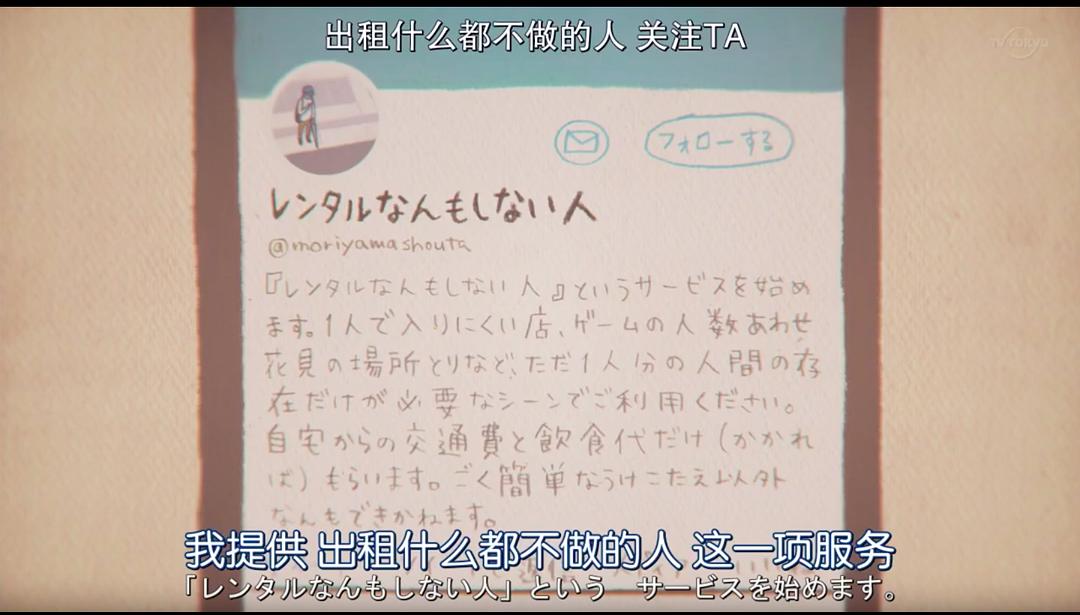 出租什么都不做的人 关注TA
TV TOKYO
フォローする
レンタルなんもしない人
@moriyamashouta
『レンタルなんもしない人』というサービスを始め
ます。1人で入りにくい店、ゲームの人数あわせ
花見の場所とりなど、ただ1人分の人間の存
在だけが必要なシーンでご利用ください。
自宅からの交通費と飲食代だけ(かかれ
ば)もらいます。ごく簡単なうけこたえ以外
なんもできかねます。
我提供 出租什么都不做的人 这一项服务
「レンタルなんもしない人」という サービスを始めます。